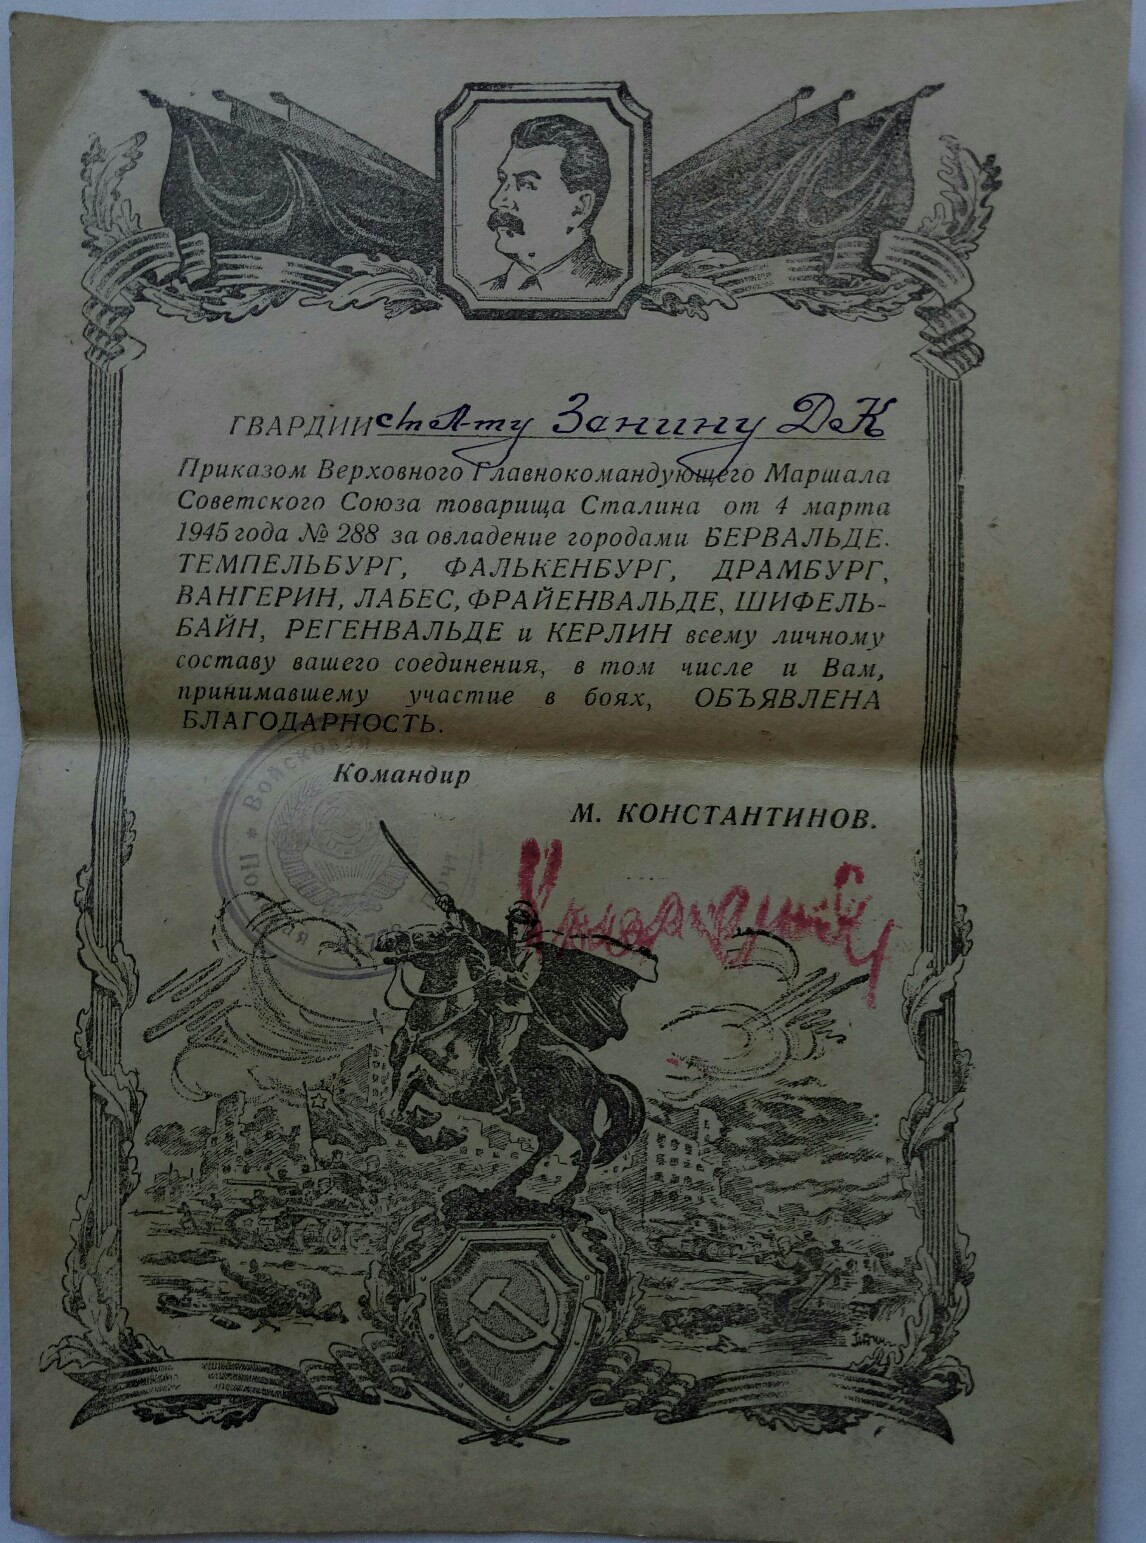 ГВАРДИИ ст. Л-ту Занину Д К
Приказом Верховного Главнокомандующего Маршала
Советского Союза товарища Сталина от 4 марта
1945 года № 288 за овладение городами БЕРВАЛЬДЕ.
ТЕМПЕЛЬБУРГ, ФАЛЬКЕНБУРГ, ДРАМБУРГ,
ВАНГЕРИН, ЛАБЕС, ФРАЙЕНВАЛЬДЕ, ШИФЕЛЬ-
БАЙН, РЕГЕНВАЛЬДЕ и КЕРЛИН всему личному
составу вашего соединения, в том числе и Вам,
принимавшему участие в боях, ОБЪЯВЛЕНА
БЛАГОДАРНОСТЬ.
Командир
М. КОНСТАНТИНОВ.